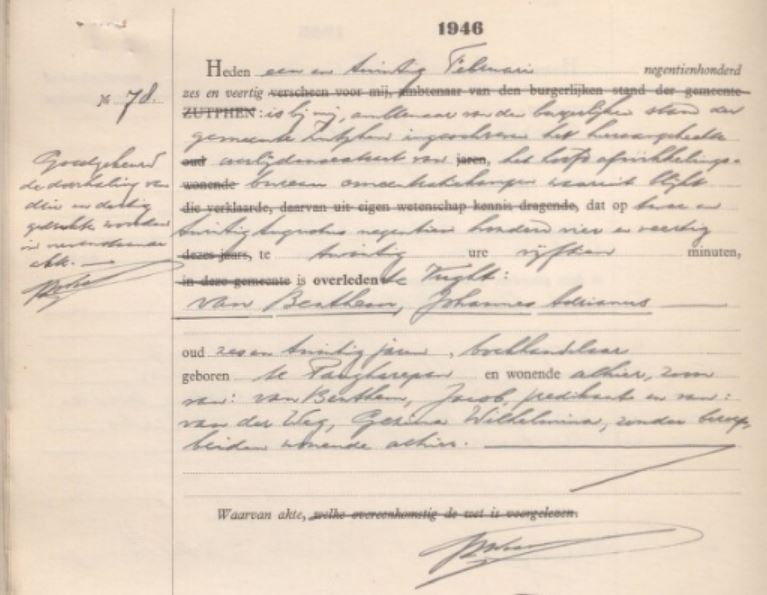 1946
Heden een en twintig Februari negentienhonderd
№ 78.
zes en veertig verscheen voor mij, ambtenaar van den burgerlijken stand der gemeente
ZUTPHEN: is bij mij, ambtenaar van den burgerlijken stand der
gemeente Zutphen ingeschreven het hieraangehechte
oud overlijdensextract van jaren, het hoofd afwikkelings-
wonende bureau concentratiekampen waaruit blijkt
die verklaarde, daarvan uit eigen wetenschap kennis dragende, dat op twee en
twintig Augustus negentien honderd vier en veertig
dezes jaars, te twintig ure vijftien minuten,
in deze gemeente is overleden te Vught:
van Benthem, Johannes Adrianus
Goedgekeurd
de doorhaling van
drie en dertig
gedrukte woorden
in nevenstaande
akte. —
oud zes en twintig jaren, boekhandelaar
geboren te en wonende alhier, zoon
van: van Benthem, Jacob, predikant en van:
van der Weg, Gesina Wilhelmina, zonder beroep,
beiden wonende alhier.
Waarvan akte, welke overeenkomstig de wet is voorgelezen.